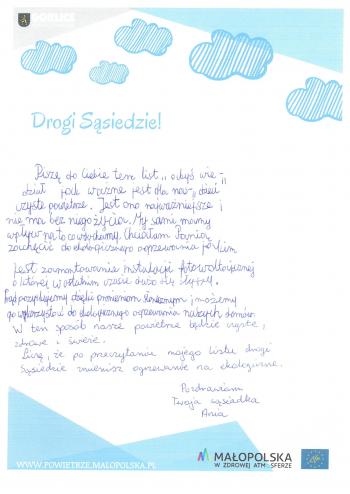 GORLICE
Drogi Sąsiedzie!
Piszę do Ciebie ten list, abyś wie-
dział jak ważne jest dla nas
czyste powietrze. Jest ono najważniejsze i
nie ma bez niego życia. My sami mamy
wpływ na to czym oddychamy. Chciałam Pana
zachęcić do ekologicznego ogrzewania
jest zamontowanie instalacji fotowoltaicznej
o której w ostatnim czasie dużo się słyszy.
Prąd pozyskujemy dzięki promieniom słonecznym i możemy
go wykorzystać do ekologicznego ogrzewania naszych domów.
W ten sposób nasze powietrze będzie czyste,
zdrowe i świeże.
Liczę, że po przeczytaniu mojego listu drogi
Sąsiedzie zmienisz ogrzewanie na ekologiczne.
Pozdrawiam
Twoja sąsiadka
Ania
MAŁOPOLSKA
W ZDROWEJ ATMOSFERZE
WWW.POWIETRZE.MALOPOLSKA.PL